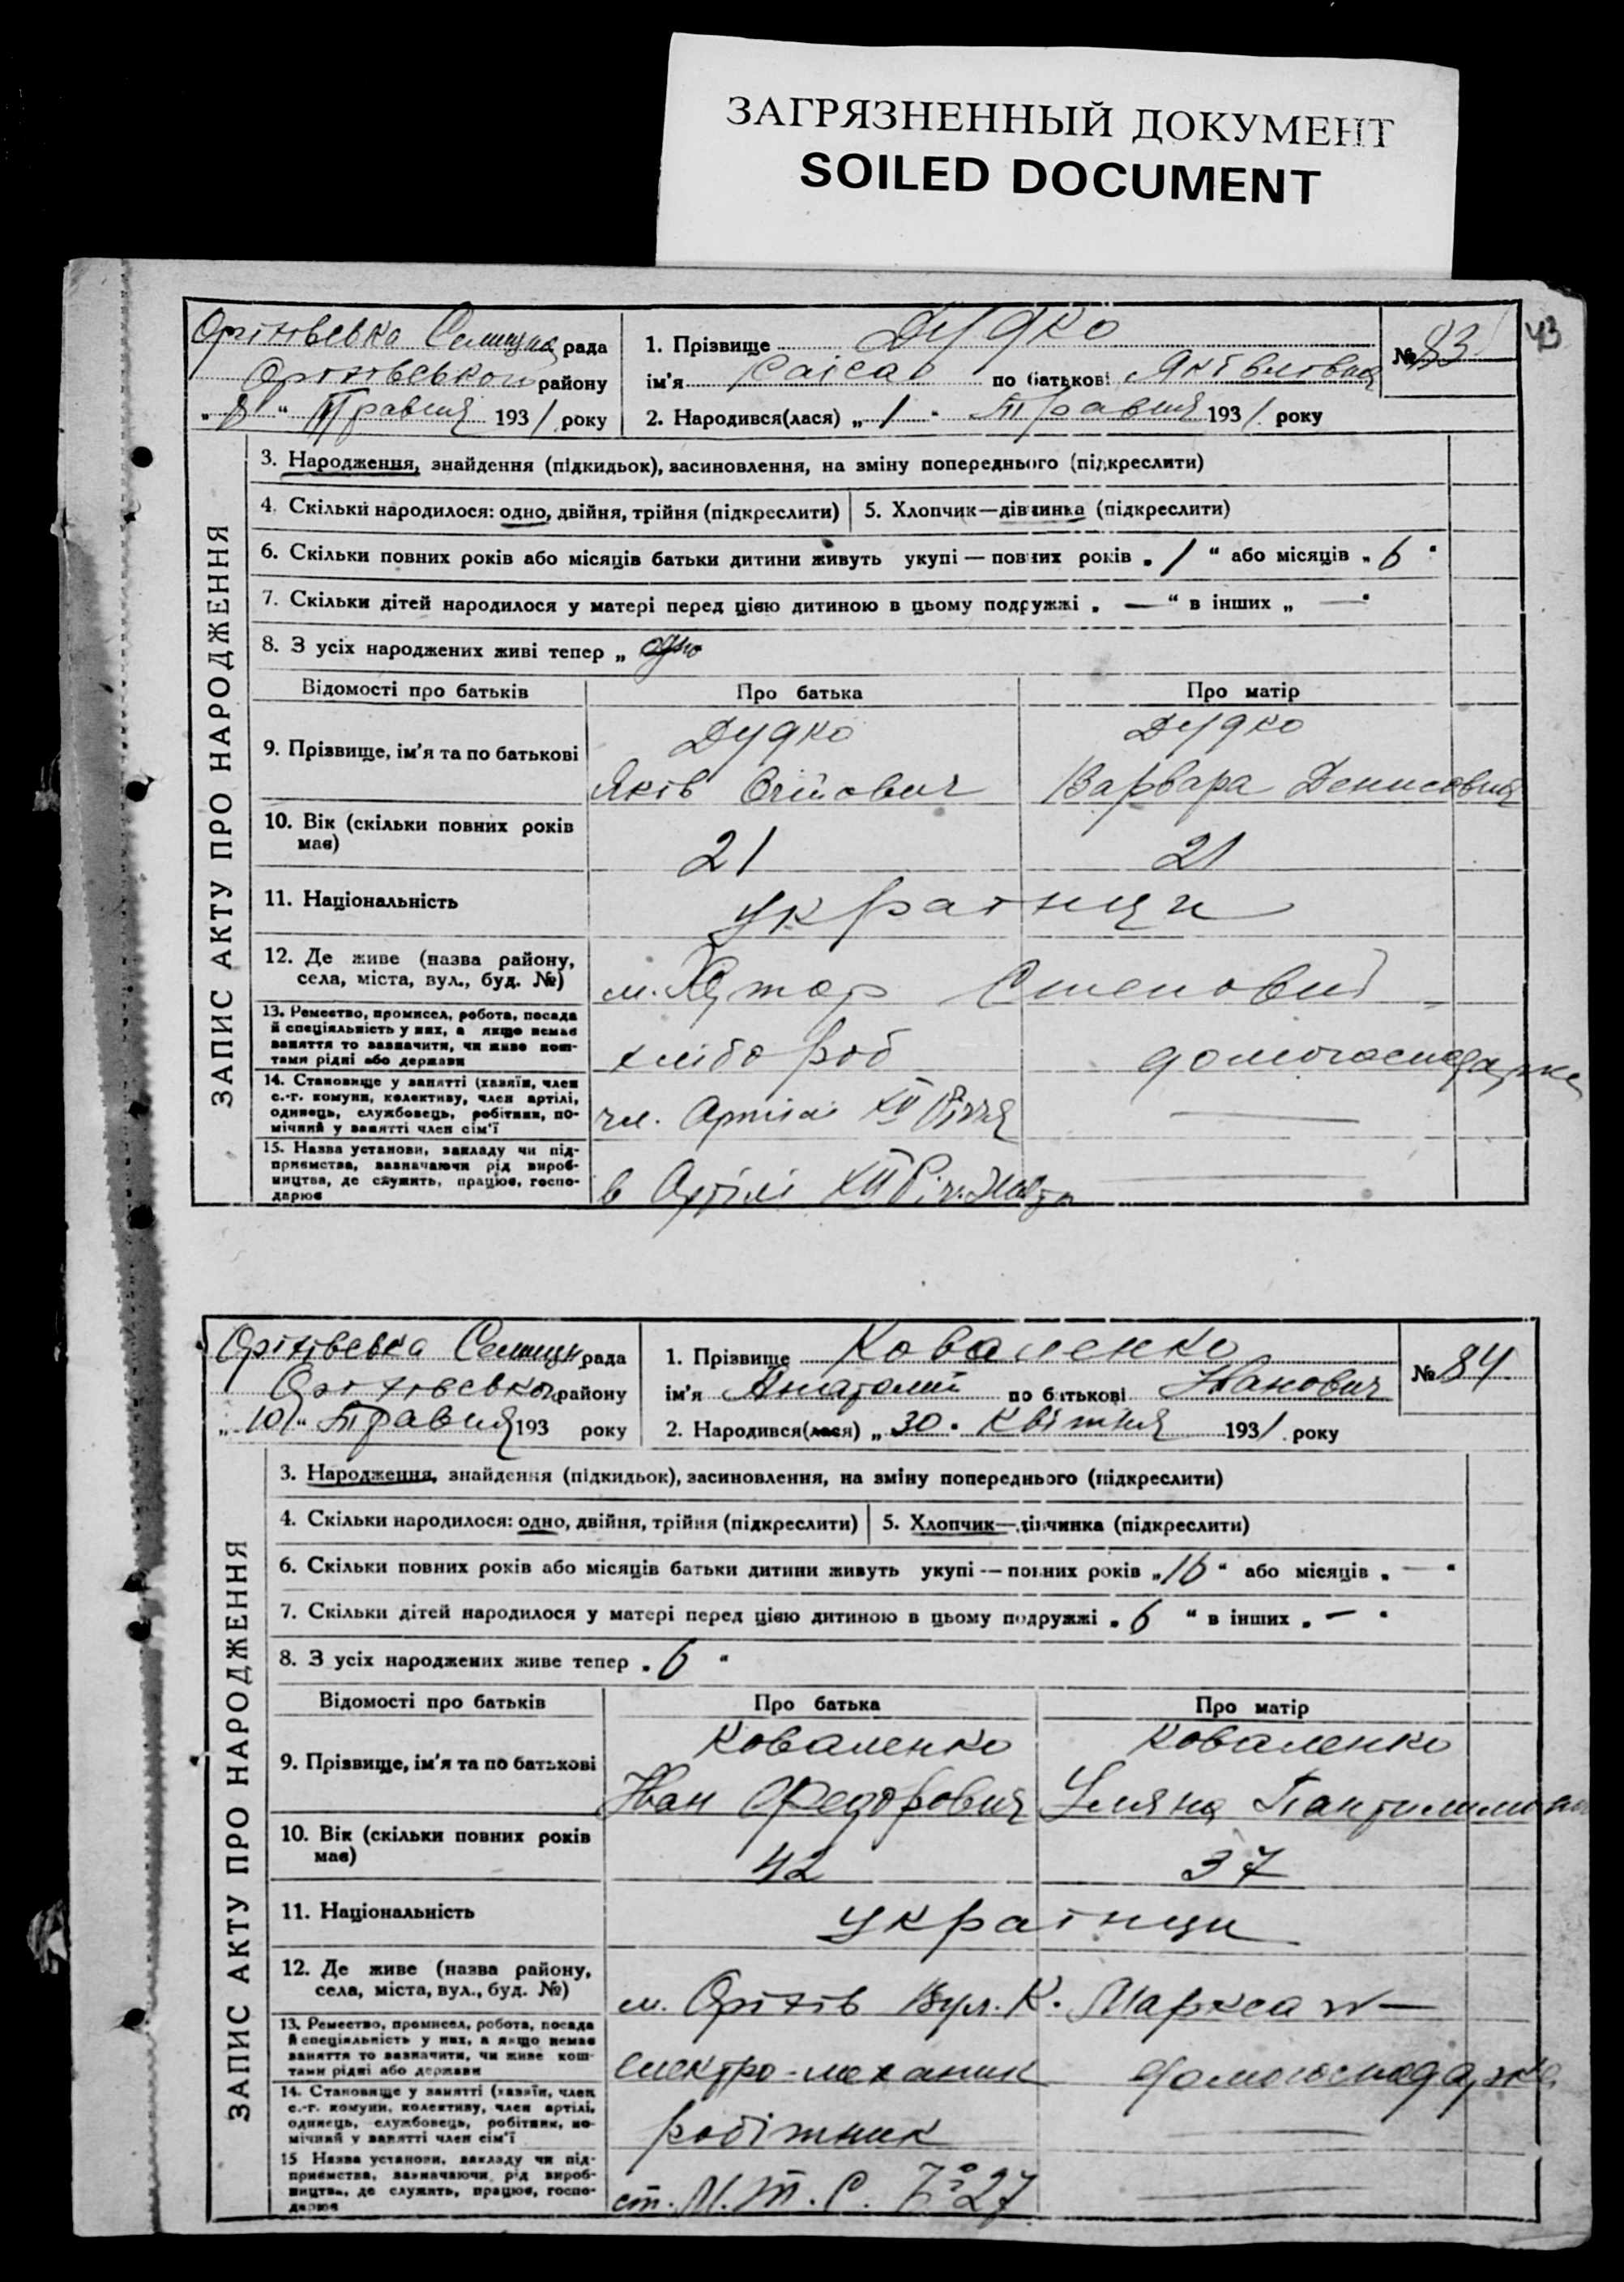 ЗАГРЯЗНЕННЫЙ ДОКУМЕНТ
SOILED DOCUMENT
43
Оріхівська Селищна рада
Оріхівського району
„ 8 “ Травня 1931 року
1. Прізвище Дудко
ім'я Раїса по батькові Яківлівна
№ 83
2. Народився(лася) „ 1 “ Травня 1931 року
ЗАПИС АКТУ ПРО НАРОДЖЕННЯ
3. Народження, знайдення (підкидьок), засиновлення, на зміну попереднього (підкреслити)
4. Скільки народилося: одно, двійня, трійня (підкреслити) 5. Хлопчик—дівчинка (підкреслити)
6. Скільки повних років або місяців батьки дитини живуть укупі — повних років „ 1 “ або місяців „ 6 “
7. Скільки дітей народилося у матері перед цією дитиною в цьому подружжі „ — “ в інших „ — “
8. З усіх народжених живі тепер „ одно
Відомості про батьків Про батька Про матір
9. Прізвище, ім'я та по батькові
Дудко Дудко
Яків Варвара Денисовна
10. Вік (скільки повних років має) 21 21
11. Національність українци
12. Де живе (назва району, села, міста, вул., буд. №)
м. Хутор Степовий
13. Ремество, промисел, робота, посада й спеціяльність у них, а якщо немає заняття то зазначити, чи живе коштами рідні або держави
хлібороб домогосподарка
14. Становище у занятті (хазяїн, член с.-г. комуни, колективу, член артілі, одинець, службовець, робітник, помічний у занятті член сім'ї
чл. Артілі XII Річчя —
15. Назва установи, закладу чи підприємства, зазначаючи рід виробництва, де служить, працює, господарює
в Артілі XII Річ. Жовтн —
Оріхівська Селищн рада
Оріхівської району
„ 10 “ Травня 193 року
1. Прізвище Коваленко
ім'я Анатолій по батькові Іванович
№ 84
2. Народився(лася) „ 30 “ Квітня 1931 року
ЗАПИС АКТУ ПРО НАРОДЖЕННЯ
3. Народження, знайдення (підкидьок), засиновлення, на зміну попереднього (підкреслити)
4. Скільки народилося: одно, двійня, трійня (підкреслити) 5. Хлопчик—дівчинка (підкреслити)
6. Скільки повних років або місяців батьки дитини живуть укупі — повних років „ 16 “ або місяців „ — “
7. Скільки дітей народилося у матері перед цією дитиною в цьому подружжі „ 6 “ в інших „ — “
8. З усіх народжених живе тепер „ 6 “
Відомості про батьків Про батька Про матір
9. Прізвище, ім'я та по батькові
Коваленко Коваленко
Іван Федорович Уляна
10. Вік (скільки повних років має) 42 37
11. Національність українци
12. Де живе (назва району, села, міста, вул., буд. №)
м. Оріхів Вул. К. Маркса № —
13. Ремество, промисел, робота, посада й спеціяльність у них, а якщо немає заняття то зазначити, чи живе коштами рідні або держави
електро-механик домогосподарка
14. Становище у занятті (хазяїн, член с.-г. комуни, колективу, член артілі, одинець, службовець, робітник, помічний у занятті член сім'ї
робітник —
15 Назва установи, закладу чи підприємства, зазначаючи рід виробництва, де служить, працює, господарює
ст. М.Т.С. № 27 —